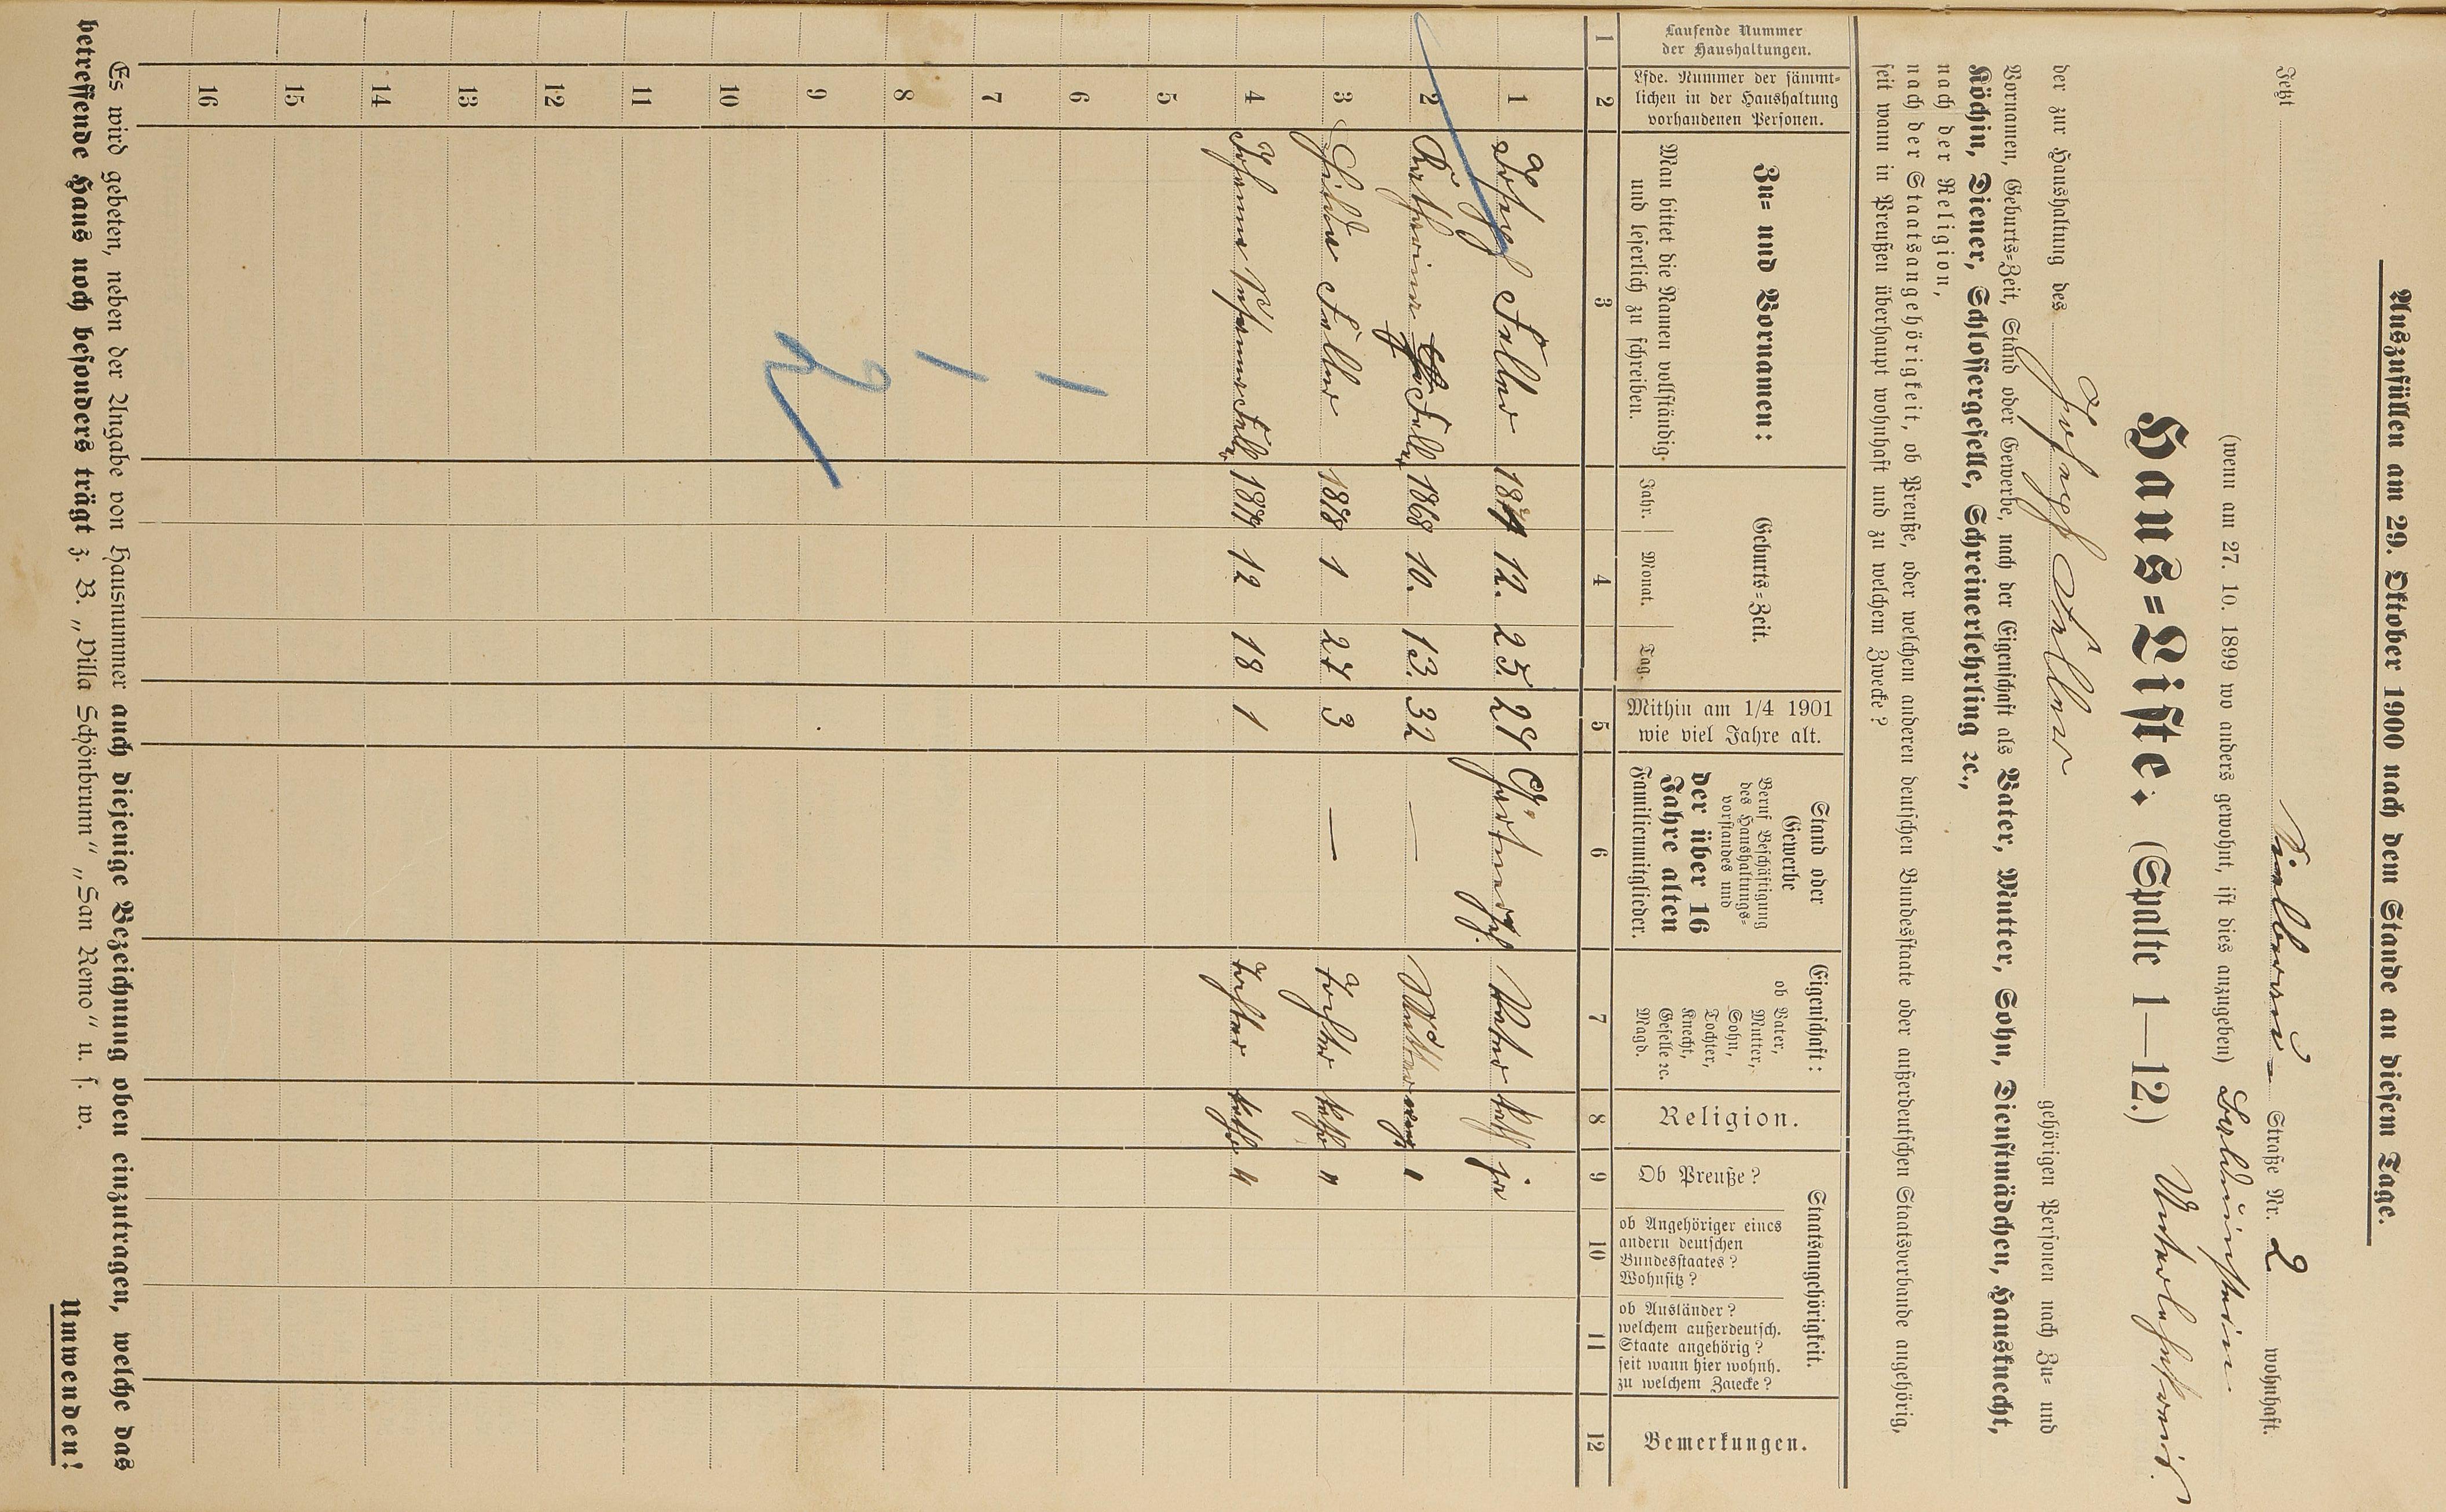 Auszufüllen am 29. Oktober 1900 nach dem Stande an diesem Tage.
Jetzt Straße Nr. 2 wohnhaft.
(wenn am 27. 10. 1899 wo anders gewohnt, ist dies anzugeben)
Haus=Liste. (Spalte 1—12.)
der zur Haushaltung des Joseph Feller gehörigen Personen nach Zu= und
Vornamen, Geburts=Zeit, Stand oder Gewerbe, nach der Eigenschaft als Vater, Mutter, Sohn, Dienstmädchen, Hausknecht,
Köchin, Diener, Schlossergeselle, Schreinerlehrling ꝛc.,
nach der Religion,
nach der Staatsangehörigkeit, ob Preuße, oder welchem anderen deutschen Bundesstaate oder außerdeutschen Staatsverbande angehörig,
seit wann in Preußen überhaupt wohnhaft und zu welchem Zwecke?
Laufende Nummer
der Haushaltungen.
Lfde. Nummer der sämmt-
lichen in der Haushaltung
vorhandenen Personen.
Zu= und Vornamen:
Man bittet die Namen vollständig
und leserlich zu schreiben.
Geburts=Zeit.
Jahr. Monat. Tag.
Mithin am 1/4 1901
wie viel Jahre alt.
Stand oder
Gewerbe
Beruf Beschäftigung
des Haushaltungs-
vorstandes und
der über 16
Jahre alten
Familienmitglieder.
Eigenschaft:
ob Vater,
Mutter,
Sohn,
Tochter,
Knecht,
Geselle ꝛc.
Magd.
Religion.
Staatsangehörigkeit.
Ob Preuße?
ob Angehöriger eines
andern deutschen
Bundesstaates?
Wohnsitz?
ob Ausländer?
welchem außerdeutsch.
Staate angehörig?
seit wann hier wohnh.
zu welchem Zwecke?
Bemerkungen.
1 2 3 4 5 6 7 8 9 10 11 12
1 Joseph Feller 12. 25. 29 Vater kath ja
2 Katharina Feller 1868 10. 13. 32 — Mutter evang. "
3 Feller 1 27. 3 — Tochter kath "
4 Johanna Feller 12 18 1 Tochter kath "
5
6
7
8
9
10
11
12
13
14
15
16
Es wird gebeten, neben der Angabe von Hausnummer auch diejenige Bezeichnung oben einzutragen, welche das
betreffende Haus noch besonders trägt z. B. „Villa Schönbrunn“ „San Remo“ u. s. w.
Umwenden!